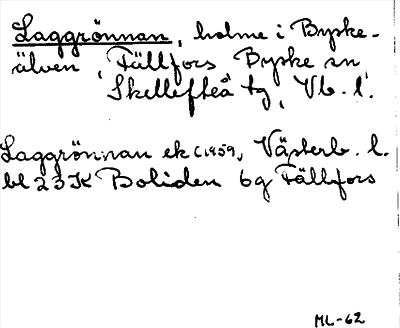 Laggrönnan, holme i Byske-
älven, Fällfors Byske sn,
Skellefteå tg, Vb. l.
Laggrönnan ek (1959, Västerb. l.
bl 23K Boliden 6g Fällfors
ML-62